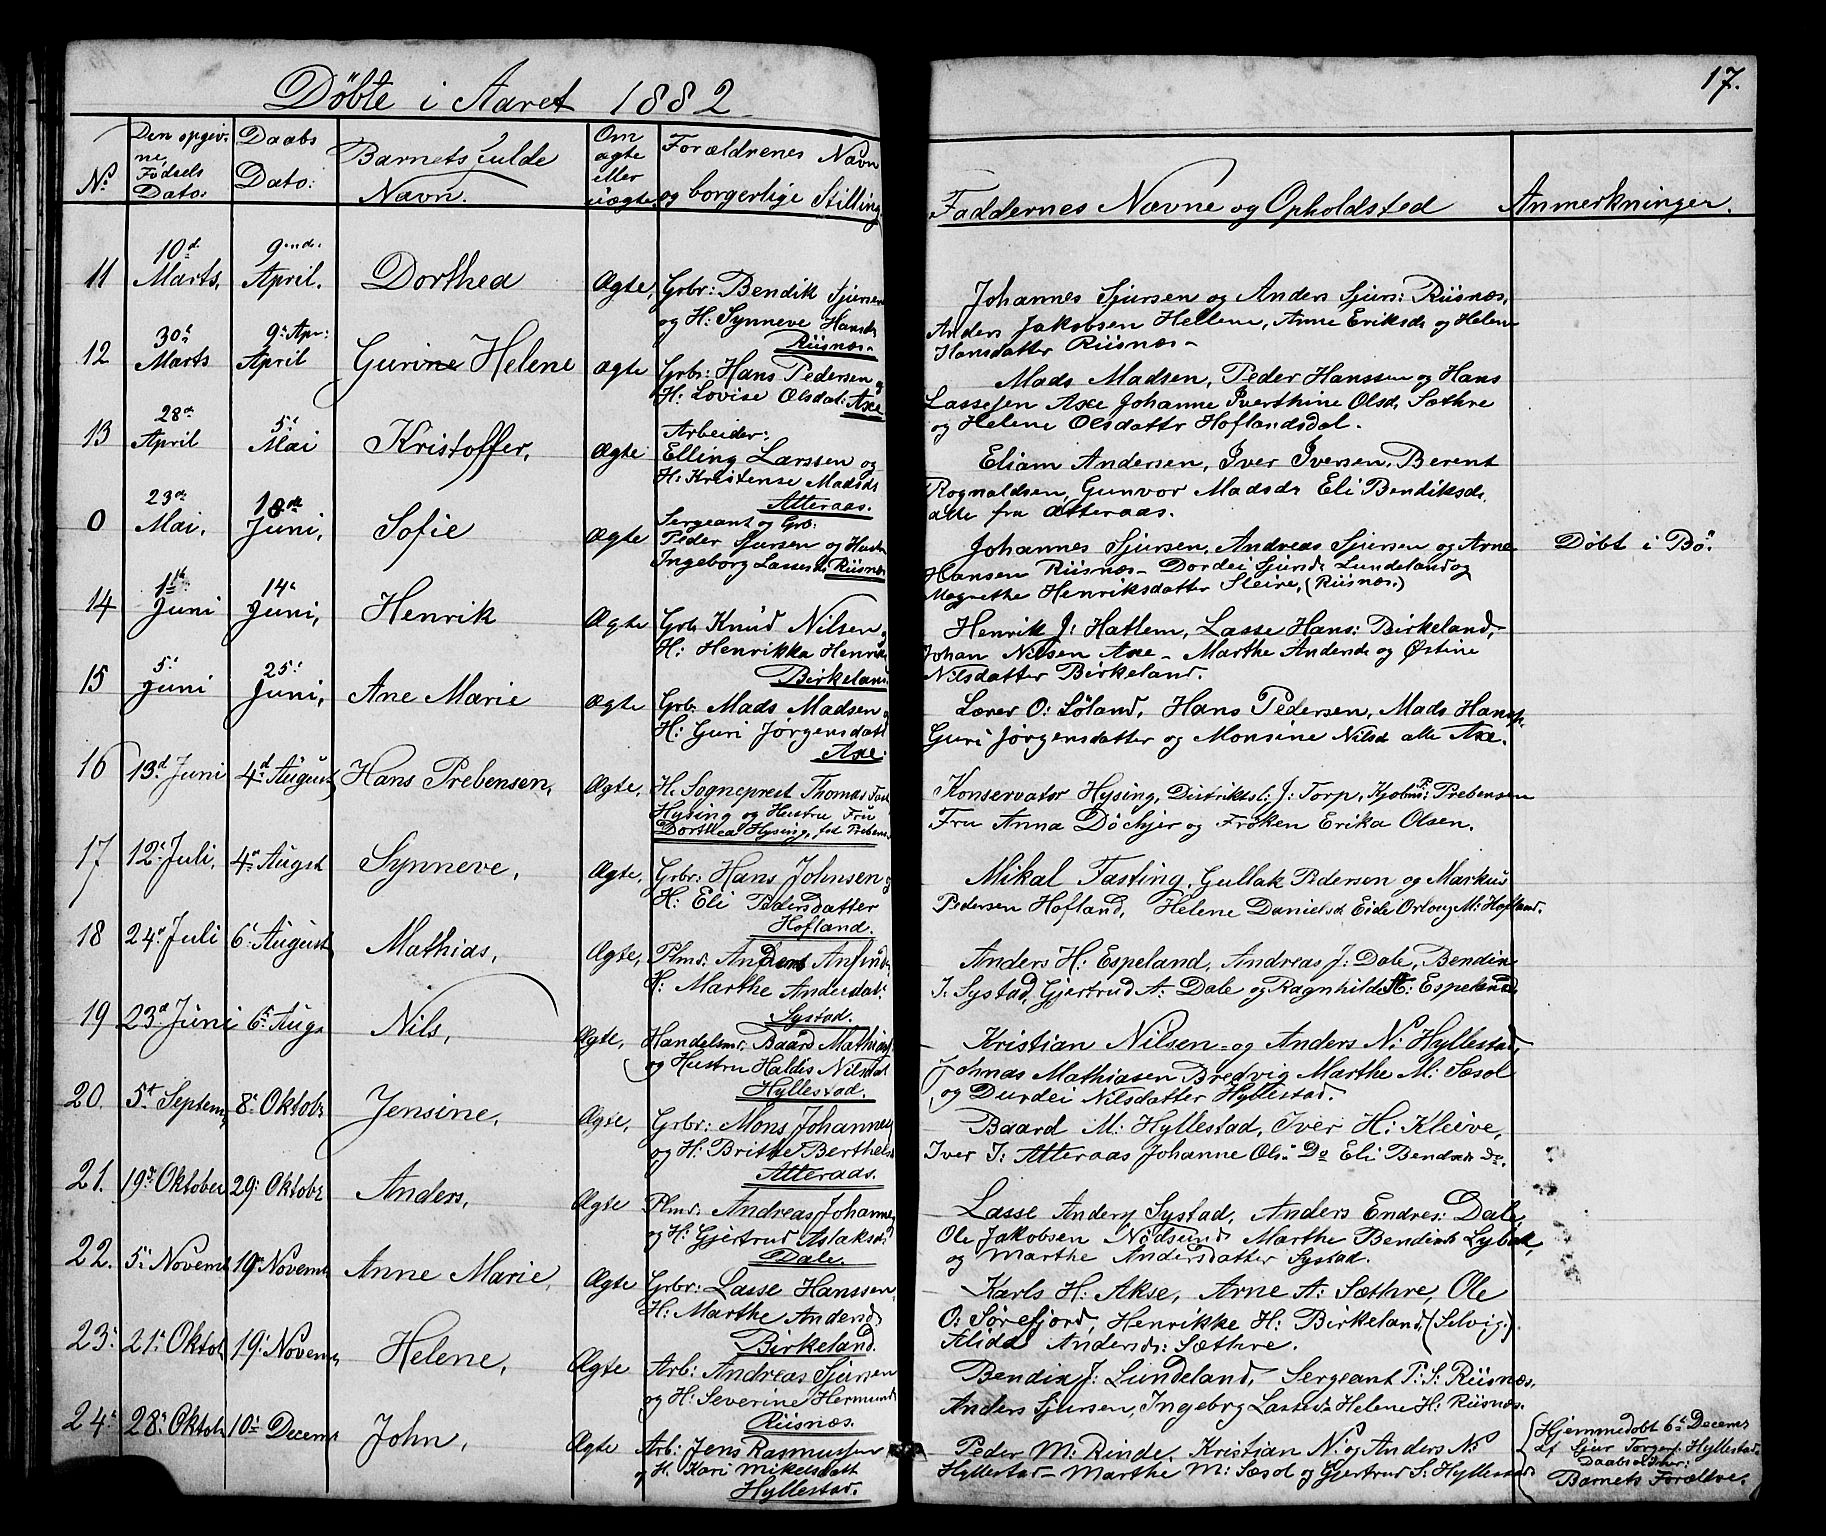 Döbte i Aaret 1882
17.
No
Den opgiv-
ne
Födsels
Dato:
Daabs
Dato:
Barnets fulde
Navn.
Om
ægte
eller
uægte.
Forældrenes Navn
og borgerlige Stilling.
Faddernes Navne og Opholdsted
Anmerkninger.
11 10d Marts, 9nd April. Dorthea Ægte, Grbr: Bendik Sjursen
og H: Synneve Hansdr
Riisnæs.
Johannes Sjursen og Anders Sjurs: Riisnæs,
Anders Jakobsen Hellem, Anne Eriksdr og Helene
Hansdatter Riisnæs
12 30d Marts 9d Apr: April Gurine Helene Ægte Grbr: Hans Pedersen og
H: Lovise Olsdat: Axe
Mads Madsen, Peder Hanssen og Hans
Lassesen Axe Johanne Iverthine Olsd. Sæthre
og Helene Olsdattr Hoflandsdal.
13 28d April 5d Mai Kristoffer, Ægte Arbeider:
Elling Larssen og
H: Kristense Madsdr
Atteraas.
Eliam Andersen, Iver Iversen, Berent
Rognaldsen, Gunvor Madsdr Eli Bendiksdr
alle fra Atteraas.
0 23de Mai, 18de Juni, Sofie Ægte Sergeant og Grb:
Peder Sjursen og Hustr
Ingeborg Lassesd. Riisnæs
Johannes Sjursen, Andreas Sjursen og Arne
Hansen Riisnæs - Dordei Sjursdr Lundeland og
Magrethe Henriksdatter Sleire, (Riisnæs.)
Döbt i Bö.
14 1ste Juni 14d Juni, Henrik Ægte Grb. Knud Nilsen og
H: Henrikka Henriks
Birkeland
Henrik J: Hatlem, Lasse Hans: Birkeland,
Johan Nilsen Axe - Marthe Andersdr og Østine
Nilsdatter Birkeland.
15 5d Juni 25d Juni, Ane Marie Ægte Grb. Mads Madsen og
H: Guri Jørgensdatt
Axe.
Lærer O: Löland, Hans Pedersen, Mads Hanss,
Guri Jørgensdatter og Monsine Nilsd alle Axe.
16 13d Juni 4d August Hans Prebensen, Ægte, H. Sogneprest Thomas
Hysing og Hustru Fru
Dorthea Hysing, fød Prebens
Konservator Hysing, Distriktsl: J: Torp, Kjøbm: P Prebensen
Fru Anna Döcher og Frøken Erika Olsen.
17 12d Juli, 4d Augst Synneve, Ægte, Grbr: Hans Johnsen og
H: Eli Pedersdatter
Hofland.
Mikal Fasting, Gullak Pedersen og Markus
Pedersen Hofland, Helene Danielsd Eide M: Hofland.
18 24d Juli 6d August Mathias, Ægte, Plmd: Anders Anfinds
H: Marthe Andersdat:
Systad.
Anders H: Espeland, Andreas J: Dale, Bendix
J. Systad, Gjertrud A: Dale og Ragnhilde H: Espeland
19 23d Juni 6d Augs Nils, Ægte, Handelsmd: Baard Mathias
og Hustru Haldis Nilsdat
Hyllestad.
Kristian Nilsen og Anders N: Hyllestad,
Johnas Mathiasen Bredvig Marthe M: Sæsol
og Durdei Nilsdatter Hyllestad.
20. 5t Septem, 8d Oktobr Jensine, Ægte, Grbr: Mons Johannes
og H: Brithe Berthels
Atteraas.
Baard M: Hyllestad, Iver H: Kleive,
Iver I: Atteraas Johanne Ols: Do Eli Bendsdr do.
21. 19d Oktober 29d Oktobr Anders, Ægte Plmd: Andreas Johannes
og H: Gjertrud Aslaksdr
Dale.
Lasse Anders: Systad, Anders Endres: Dale,
Ole Jakobsen Nödseund Marthe Bendixdr Lybæk,
og Marthe Andersdatter Systad.
22. 5d Novemb 19d Novemb Anne Marie, Ægte Grbr: Lasse Hanssen,
H: Marthe Andersd
Birkeland.
Karls H: Akse, Arne A: Sæthre, Ole
O: Sørefjord, Henrikke H: Birkeland, (Selvig.)
Alida Andersdr: Sæthre.
23. 21d Oktob 19d Novemb Helene, Ægte Arb: Andreas Sjursen
og H: Severine Hermund
Riisnæs.
Bendix J: Lundeland, Sergeant P: S: Riisnæs,
Anders Sjursen, Ingeborg Lassedr Helene H: Riisnæs.
24. 28d Oktob 10d Decemb John, Ægte Arb: Jens Rasmussen
og H. Kari Mikelsdatt
Hyllestad.
Peder M: Rinde. Kristian N: og Anders N:
Hyllestad - Marthe M: Sæsol og Gjertrud S: Hyllestad
Hjemmedöbt 6d Decemb
af Sjur Torgers. Hyllestad
Daabsvidner:
Barnets Forældre.